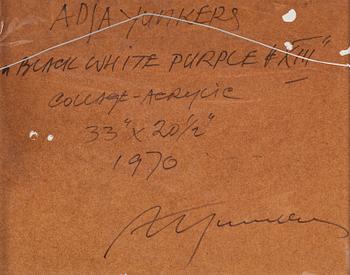 ADJA YUNKERS
"BLACK WHITE PURPLE # XIII"
COLLAGE-ACRYLIC
33" X 20½"
1970
A Yunkers